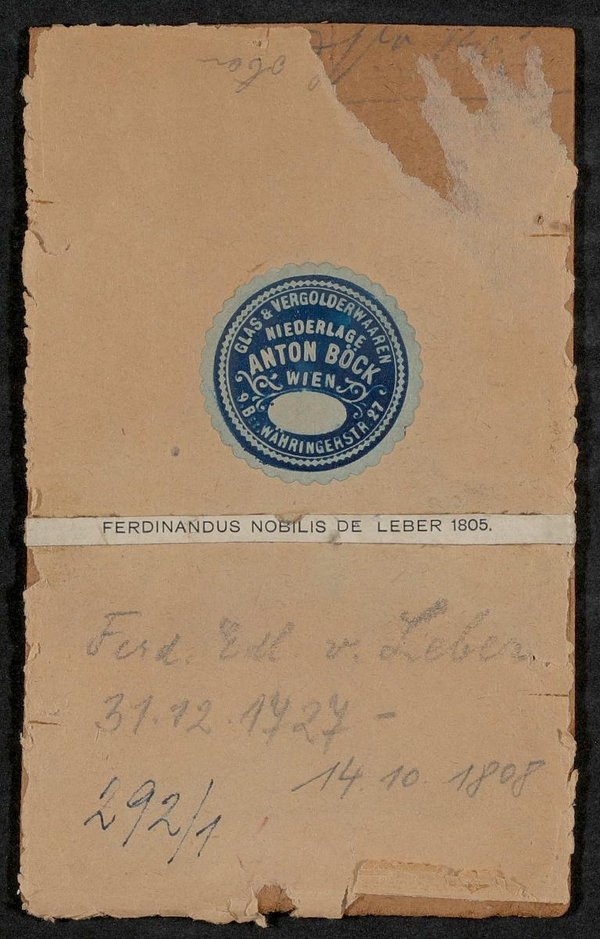 oben
GLAS & VERGOLDERWAAREN
NIEDERLAGE
ANTON BOCK
WIEN
9. Bez. WÄHRINGERSTR. 27
FERDINANDUS NOBILIS DE LEBER 1805.
Ferd. Edl. v. Leber.
31.12.1727 -
14.10.1808
292/1